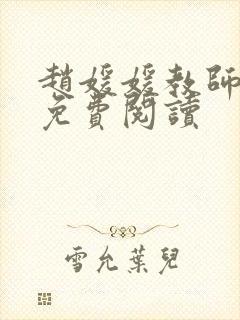 趙媛媛教師
免費閱讀
雪允葉兒